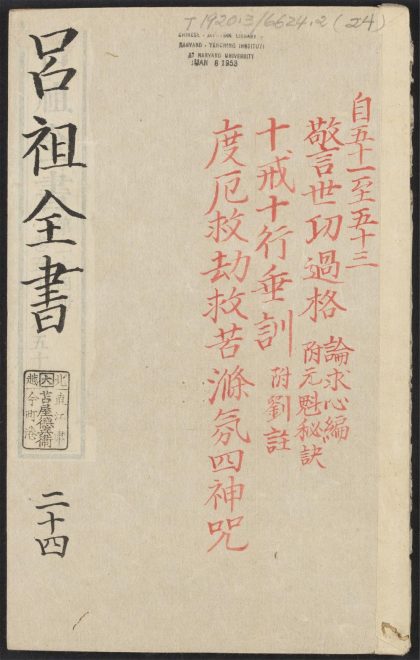 T 1920.3/6624.2 (24)
CHINESE - JAPANESE LIBRARY
HARVARD - YENCHING INSTITUTE
AT HARVARD UNIVERSITY
JAN 8 1953
自五十一至五十三
警世功過格 論求心編 附元魁秘訣
十戒十行垂訓 附劉註
度厄救劫救苦滌氛四神咒
呂祖全書
二十四